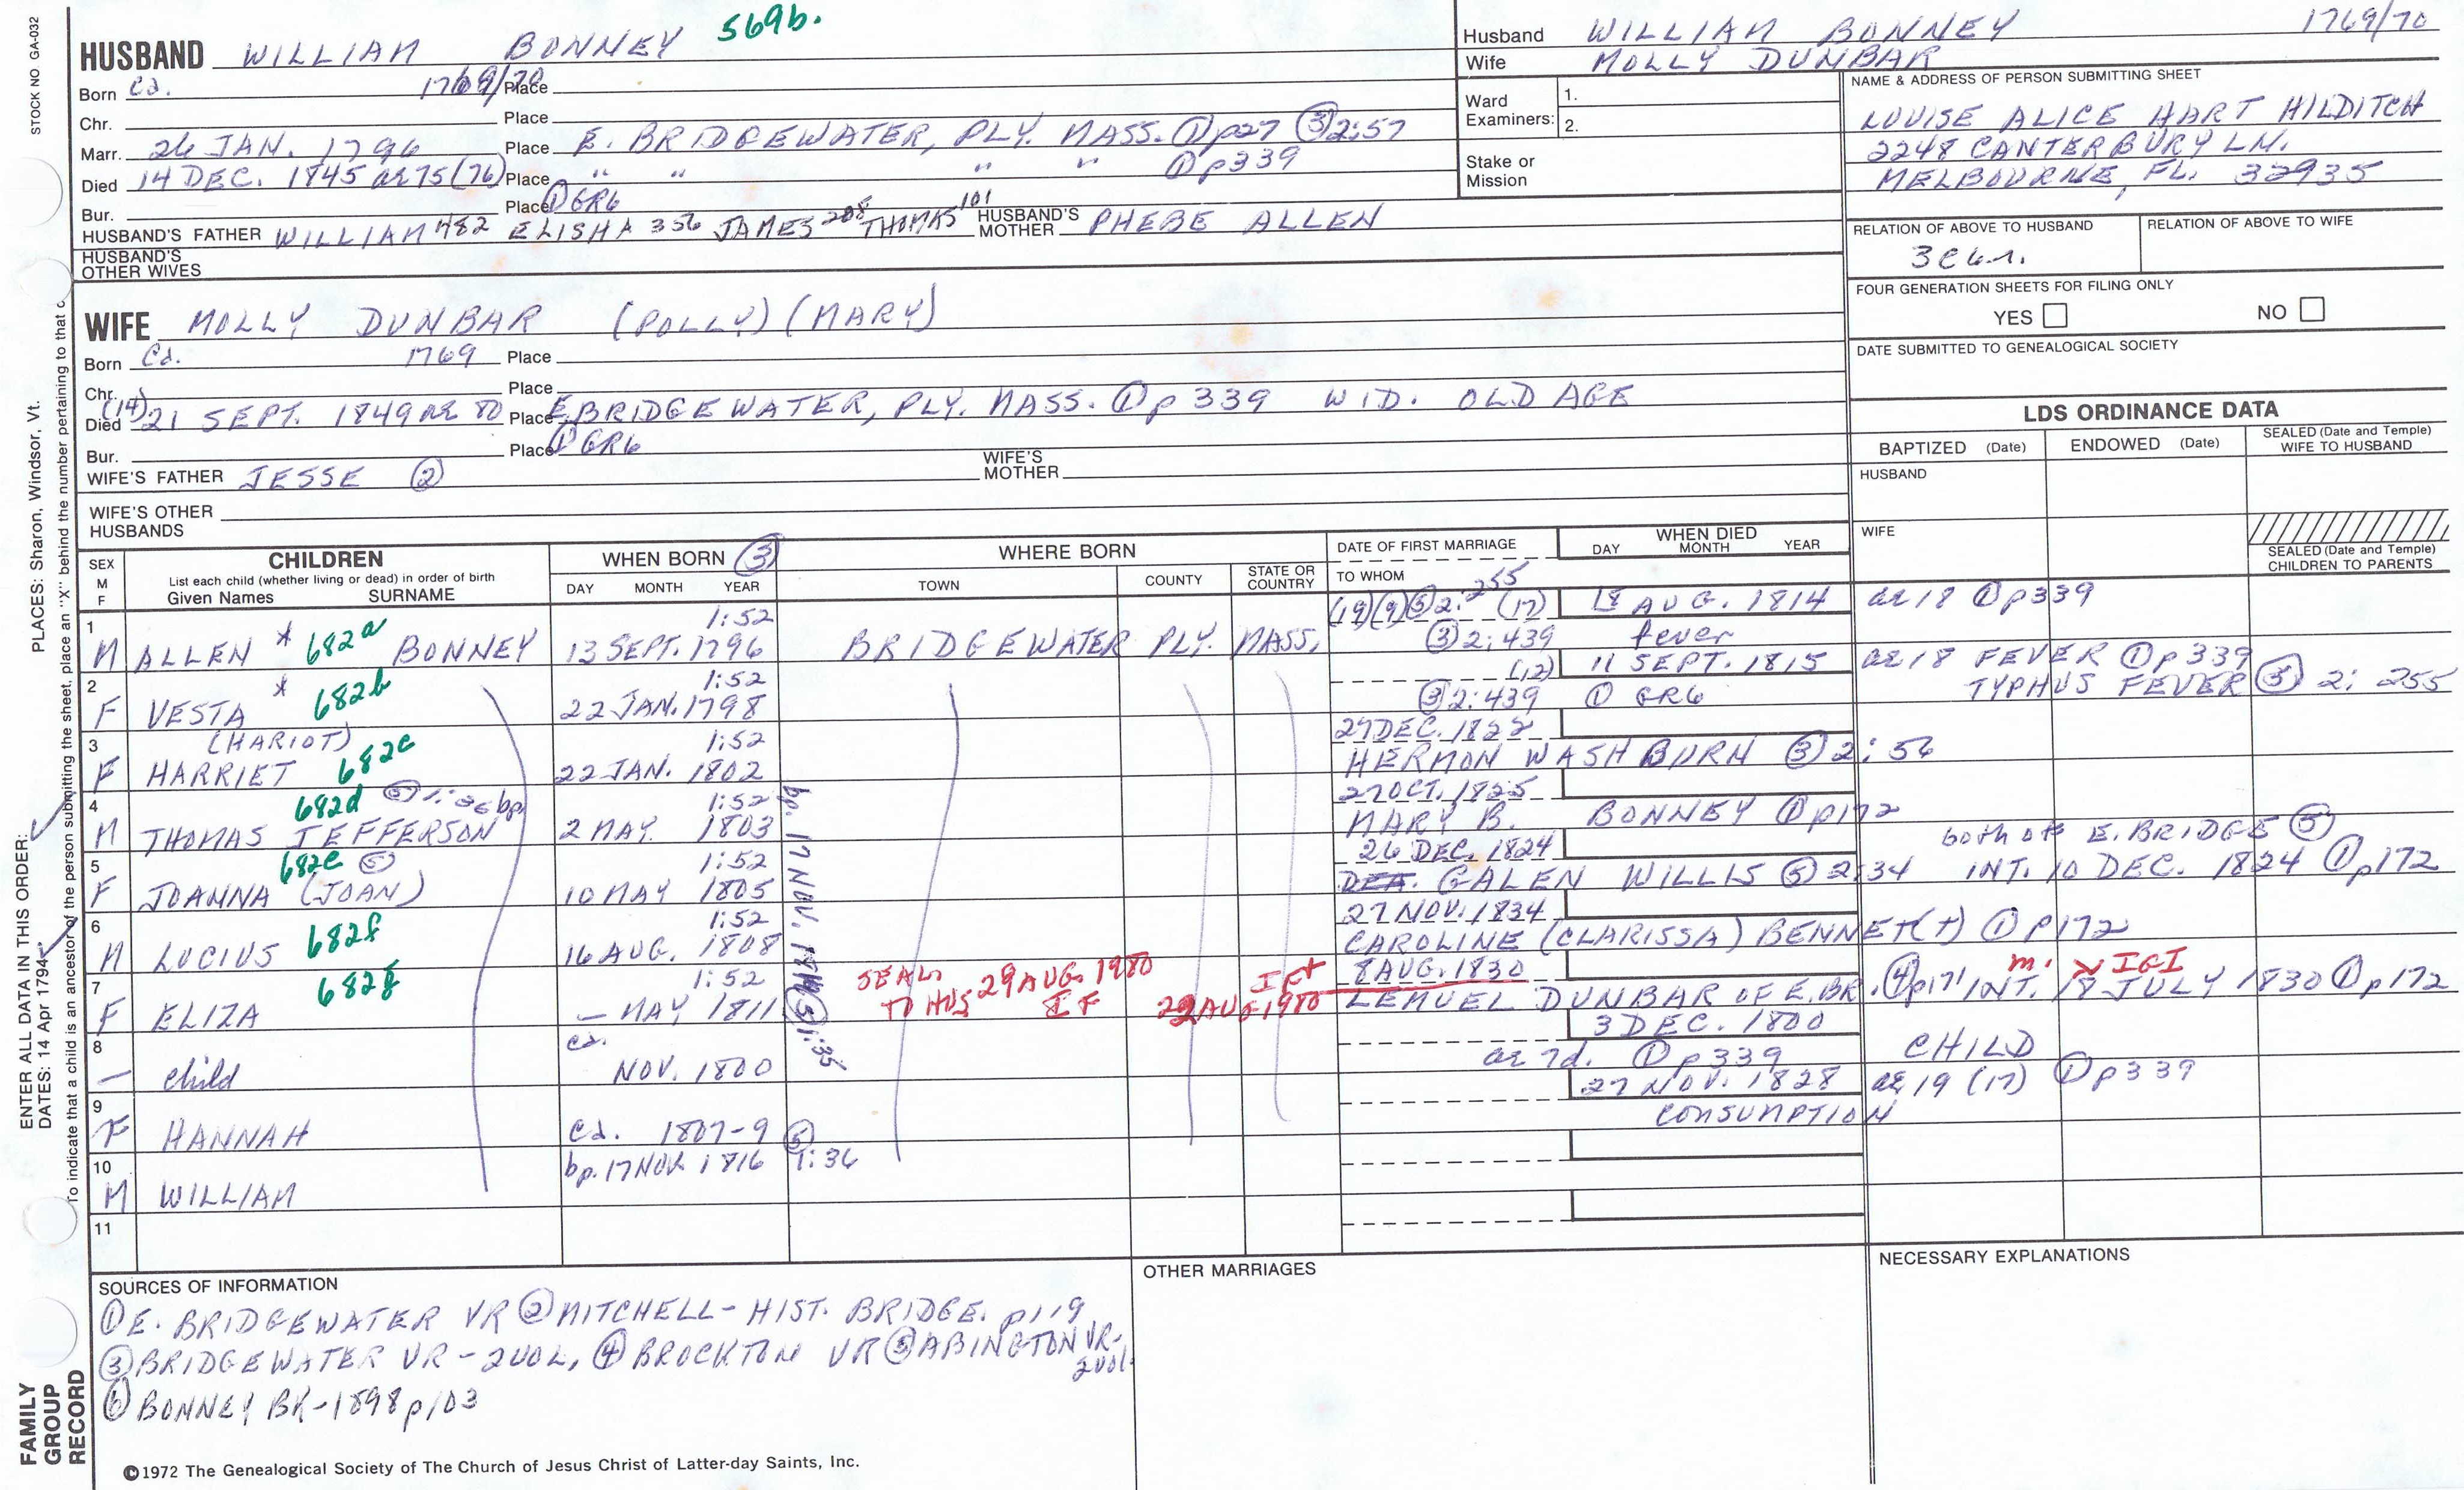 STOCK NO GA-032
HUSBAND WILLIAM BONNEY 569b.
Born Ca. 1769/70 Place
Chr. Place
Marr. 26 JAN. 1796 Place E. BRIDGEWATER, PLY. MASS. ① p27 ③ 2:57
Died 14 DEC. 1845 ae 75 (76) Place " " " " ① p339
Bur. Place ① GR6
HUSBAND'S FATHER WILLIAM 482 ELISHA 356 JAMES 208 THOMAS 101 HUSBAND'S MOTHER PHEBE ALLEN
HUSBAND'S OTHER WIVES
Husband WILLIAM BONNEY 1769/70
Wife MOLLY DUNBAR
Ward Examiners: 1.
2.
Stake or Mission
NAME & ADDRESS OF PERSON SUBMITTING SHEET
LOUISE ALICE HART HILDITCH
2248 CANTERBURY LN.
MELBOURNE, FL. 32935
RELATION OF ABOVE TO HUSBAND RELATION OF ABOVE TO WIFE
FOUR GENERATION SHEETS FOR FILING ONLY
YES NO
DATE SUBMITTED TO GENEALOGICAL SOCIETY
WIFE MOLLY DUNBAR (POLLY) (MARY)
Born Ca. 1769 Place
Chr. Place
Died (14) 21 SEPT. 1849 ae 80 Place E. BRIDGEWATER, PLY. MASS. ① p 339 WID. OLD AGE
Bur. Place ① GR6
WIFE'S FATHER JESSE ② WIFE'S MOTHER
WIFE'S OTHER HUSBANDS
LDS ORDINANCE DATA
BAPTIZED (Date) ENDOWED (Date) SEALED (Date and Temple) WIFE TO HUSBAND
HUSBAND
WIFE
SEALED (Date and Temple) CHILDREN TO PARENTS
SEX M F CHILDREN List each child (whether living or dead) in order of birth Given Names SURNAME
WHEN BORN ③ DAY MONTH YEAR
WHERE BORN TOWN COUNTY STATE OR COUNTRY
DATE OF FIRST MARRIAGE TO WHOM
WHEN DIED DAY MONTH YEAR
1 M ALLEN * 682a BONNEY 1:52 13 SEPT. 1796 BRIDGEWATER PLY. MASS. (19) (9) ⑤ 2:255 (17) 18 AUG. 1814 ae 18 ① p339
③ 2:439 fever
2 F VESTA * 682b 1:52 22 JAN. 1798 (12) 11 SEPT. 1815 ae 18 FEVER ① p 339
③ 2:439 ① GR6 TYPHUS FEVER ⑤ 2: 255
3 F (HARIOT) HARRIET 682c 1:52 22 JAN. 1802 HERMON WASHBURN ③ 2:56
4 M THOMAS JEFFERSON 682d bp 1:52 2 MAY. 1803 27 OCT. 1825 MARY B. BONNEY ① p172
5 F JOANNA (JOAN) 682e ⑤ 1:52 10 MAY 1805 26 DEC. 1824 GALEN WILLIS ⑤ 2:34 both of E. BRIDGE ⑤
INT. 10 DEC. 1824 ① p172
6 M LUCIUS 682f 1:52 16 AUG. 1808 27 NOV. 1834 CAROLINE (CLARISSA) BENNET(T) ① P172
7 F ELIZA 682g 1:52 – MAY 1811 SEAL. TO HUS 29 AUG. 1980 IF 8 AUG. 1830 LEMUEL DUNBAR OF E. BR. ④ p171 INT. 18 JULY 1830 ① p172
m. IGI
8 – child ca. NOV. 1800 3 DEC. 1800 CHILD
ae 7d. ① p339
9 F HANNAH ca. 1807-9 27 NOV. 1828 ae 19 (17) ① p339
CONSUMPTION
10 M WILLIAM bp. 17 NOV. 1816 ⑤ 1:36
11
SOURCES OF INFORMATION
① E. BRIDGEWATER VR ② MITCHELL - HIST. BRIDGE. p119
③ BRIDGEWATER VR - 2 VOL, ④ BROCKTON VR ⑤ ABINGTON VR - 2 vol.
⑥ BONNEY BK - 1898 p103
OTHER MARRIAGES
NECESSARY EXPLANATIONS
©1972 The Genealogical Society of The Church of Jesus Christ of Latter-day Saints, Inc.
ENTER ALL DATA IN THIS ORDER:
DATES: 14 Apr 1794
PLACES: Sharon, Windsor, Vt.
To indicate that a child is an ancestor of the person submitting the sheet, place an "X" behind the number pertaining to that
FAMILY GROUP RECORD